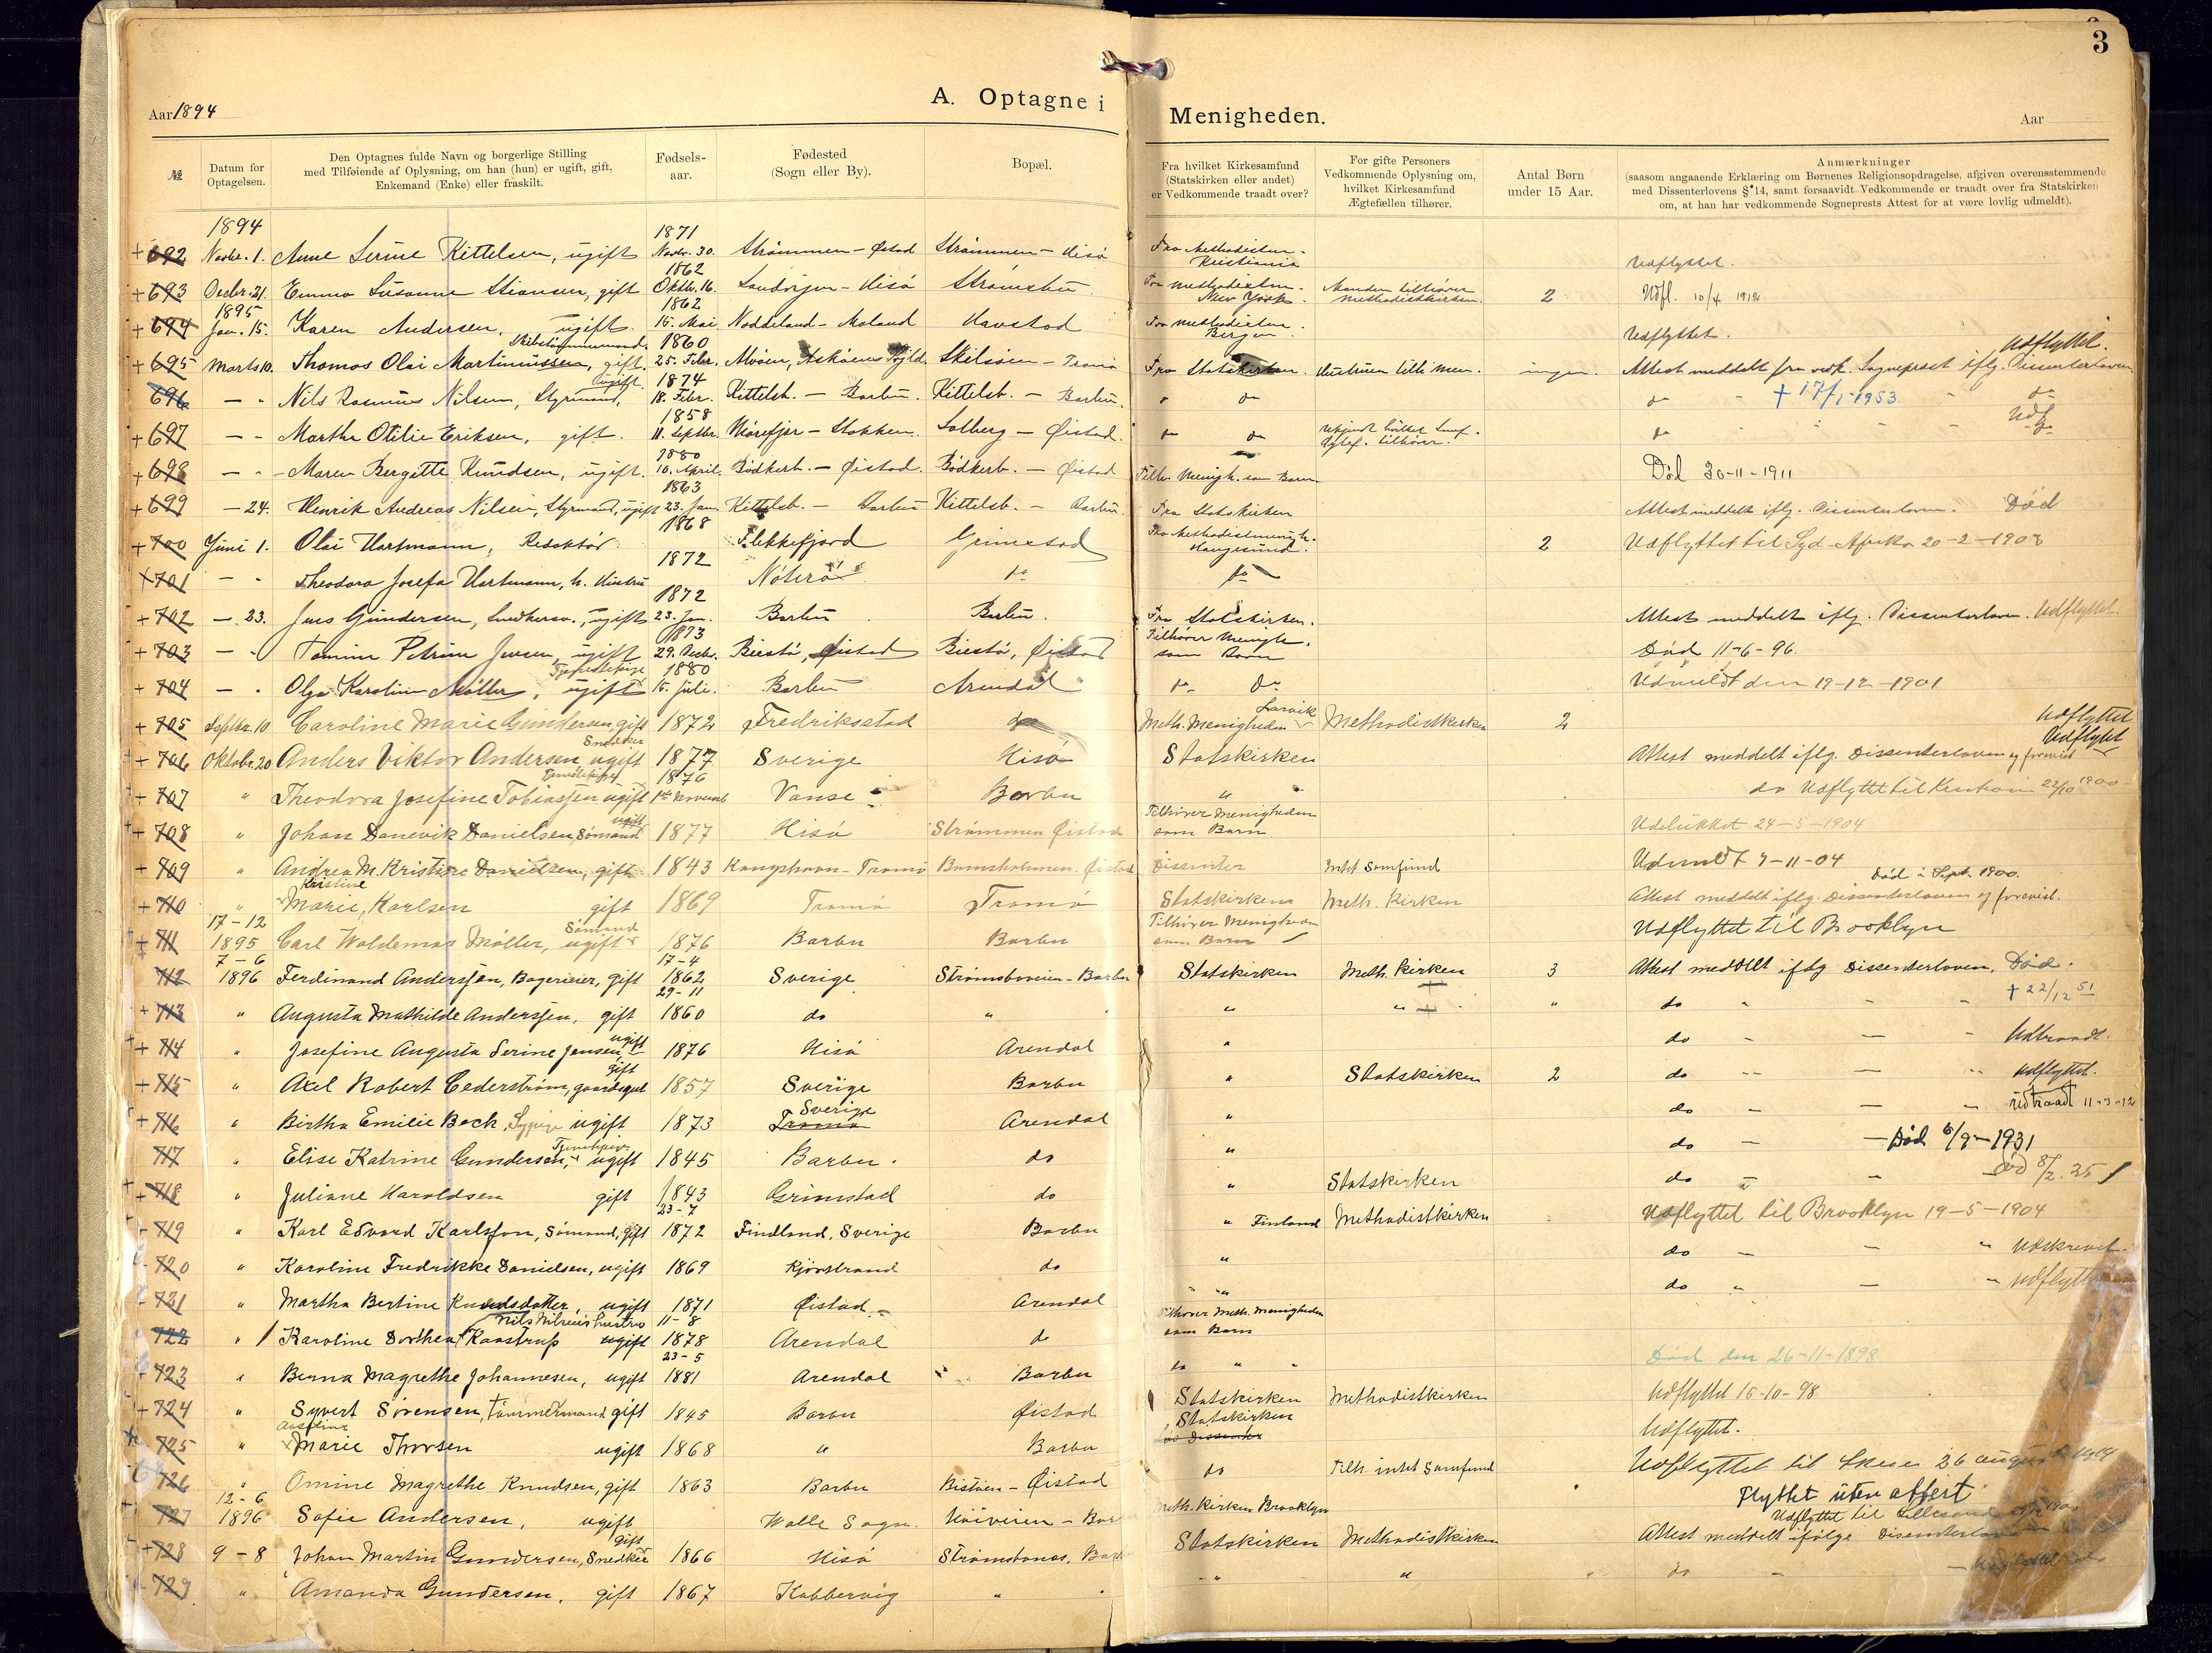 3
Aar 1894
A. Optagne i Menigheden.
Aar
№ Datum for Optagelsen. Den Optagnes fulde Navn og borgerlige Stilling med Tilføiende af Oplysning, om han (hun) er ugift, gift, Enkemand (Enke) eller fraskilt. Fødsels-aar. Fødested (Sogn eller By). Bopæl. Fra hvilket Kirkesamfund (Statskirken eller andet) er Vedkommende traadt over? For gifte Personers Vedkommende Oplysning om, hvilket Kirkesamfund Ægtefællen tilhører. Antal Børn under 15 Aar. Anmærkninger (saasom angaaende Erklæring om Børnenes Religionsopdragelse, afgiven overensstemmende med Dissenterlovens § 14, samt forsaavidt Vedkommende er traadt over fra Statskirken om, at han har vedkommende Sogneprests Attest for at være lovlig udmeldt).
1894 1871
+ 692 Novbr. 1. Anne Serine Kittelsen, ugift Novbr. 30. Strømmen - Øistad Strømmen - Hisø Fra Methodistm. Kristiania Udflyttet.
1862
+ 693 Decbr. 21. Emma Susanne Stiansen, gift Oktbr. 16. Sandvigen - Hisø Strømsbu Fra Methodistm. New York. Manden tilhører Methodistkirken. 2 Udfl. 10/4 1912
1895 1862
+ 694 Jan. 15. Karen Andersen, ugift. 15. Mai Noddeland - Moland Havstad Fra Methodistm. Bergen Udflyttet.
1860
+ 695 Marts 10. Thomas Olai Martinussen, gift. 25. Febr. Alvøen, Askøens Skilsøen - Tromø Fra Statskirken. Hustruen tilh. Men. ingen. Attest meddelt fra vedk. Sogneprest iflg. Dissenterloven. Udflyttet.
1874
696 - " Nils Rasmus Nilsen, Styrmand, ugift 18. Febr. Kittelsb. - Barbu. Kittelsb. - Barbu. " do do + 17/1-1953 do
1858
+ 697 - " Marthe Otilie Eriksen, gift. 11. Septbr. Nærefjor - Stokken. Solberg - Øistad. do do Ubekjendt hvilket Samf. Ægtef. tilhører. do Udfl.
1880
+ 698 - " Maren Bergitte Knudsen, ugift. 16. April. Bødkerb. - Øistad. Bødkerb. - Øistad Tilhr. Menigh. som Barn Død 30-11-1911
1863
+ 699 - 24. Henrik Andreas Nilsen, Styrmand, ugift 23. Jan. Kittelsb. - Barbu Kittelsb. - Barbu. Fra Statskirken Attest meddelt iflg. Dissenterloven. Død
1868
+ 700 Juni 1. Olai Hartmann, Redaktør Flekkefjord Grimestad Fra Methodistmenigh. Haugesund. 2 Udflyttet til Syd-Afrika 20-2-1903
1872
701 - " Theodora Josefa Hartmann, h. Hustru Nøterø do do
1872
+ 702 - 23. Jens Gundersen, Snedkersv., ugift 23. Jan. Barbu Barbu. Fra Statskirken. Attest meddelt iflg. Dissenterloven. Udflyttet.
1873
+ 703 - " Tomine Petrine Jensen, ugift 29. Decbr. Biestø, Øistad Biestø, Øistad Tilhører Menigh. som Barn Død 11-6-96.
Tjenestepige 1880
+ 704 - " Olga Karoline Møller, ugift 15. Juli. Barbu Arendal do do Udmeldt den 19-12-1901
+ 705 Septbr. 10 Caroline Marie Gundersen, gift 1872 Fredriksstad do Meth. Menigheden Larvik Methodistkirken 2 Udflyttet
+ 706 Oktobr. 20 Anders Viktor Andersen, Snedker ugift 1877 Sverige Hisø Statskirken Attest meddelt iflg. Dissenterloven og forevist Udflyttet
1876
+ 707 " Theodora Josefine Tobiassen ugift 1ste Novemb Vanse Barbu " do Udflyttet til 22/10 1900
+ 708 " Johan Danevik Danielsen, Sømand ugift 1877 Hisø Strømmen Øistad Tilhører Menigheden som Barn Udelukket 24-5-1904
+ 709 " Andrea M. Kristine Danielsen, gift 1843 Kongshavn - Tromø Bomsholmen. Øistad Dissenter Intet Samfund Udmeldt 7-11-04
+ 710 " Marie Kristine Karlsen gift 1869 Tromø Tromø Statskirken Meth. Kirken Attest meddelt iflg. Dissenterloven og forevist. Død i Sept. 1900.
17-12
+ 711 1895 Carl Waldemar Møller, Sømand ugift 1876 Barbu Barbu Tilhører Menigheden som Barn Udflyttet til Brooklyn
7-6 17-4
712 1896 Ferdinand Anderssen, Bagerieier, gift 1862 Sverige Strømsboveien - Barbu Statskirken Meth. Kirken 3 Attest meddelt iflg Dissenterloven. Død.
29-11
+ 713 " Augusta Mathilde Anderssen, gift 1860 do " " " " do " - - + 22/12 51
+ 714 " Josefine Augusta Serine Jensen ugift 1876 Hisø Arendal " do - - - Udtraadt.
+ 715 " Axel Robert Cederstrøm, gift 1857 Sverige Barbu " Statskirken 2 do - - " Udflyttet.
+ 716 " Birtha Emilie Beck, Sypige ugift 1873 Tromø Sverige Arendal " do - - " Udtraadt 11-3-12
717 " Elise Katrine Gundersen, Tjenestepige ugift 1845 Barbu. do " do - - Død 6/9-1931
+ 718 " Juliane Haroldsen gift 1843 Grimstad do " Statskirken do " - Død 8/2. 35
23-7
719 " Karl Edvard Karlsson, Sømand, gift 1872 Findland, Sverige Barbu " Finland Methodistkirken Udflyttet til Brooklyn 19-5-1904
720 " Karoline Fredrikke Danielsen, ugift 1869 Kjørstrand do " do - - " Udskrevet.
721 " Martha Bertine Knudsdatter, ugift 1871 Øistad Arendal " do " - " Udflyttet
Nils Nilsens hustru 11-8
722 " Karoline Dorthea Kaastrup ugift 1878 Arendal do Tilhører Meth. Menigheden som Barn
23-5
723 " Benna Magrethe Johannesen, ugift 1881 Arendal Barbu do " " Død den 26-11-1898
724 " Syvert Sørensen, Tømmermand gift 1845 Barbu Øistad Statskirken Methodistkirken Udflyttet 15-10-98
725 " Marie Thorsen ugift 1868 " Barbu Statskirken Udflyttet.
726 " Omine Magrethe Knudsen, gift 1863 Barbu Bistøen - Øistad do Tilh. intet Samfund Udflyttet til 26 august
12-6
727 1896 Sofie Andersen, ugift Halle Sogn. Høiveien - Meth. Kirken Brooklyn Flyttet uten attest
Udflyttet til Lillesand
+ 728 9-8 Johan Martin Gundersen, Snedker gift 1866 Hisø Strømsbonæs, Statskirken Methodistkirken Attest meddelt ifølge
729 " Amanda Gundersen, gift 1867 Kobbervig " " " do -